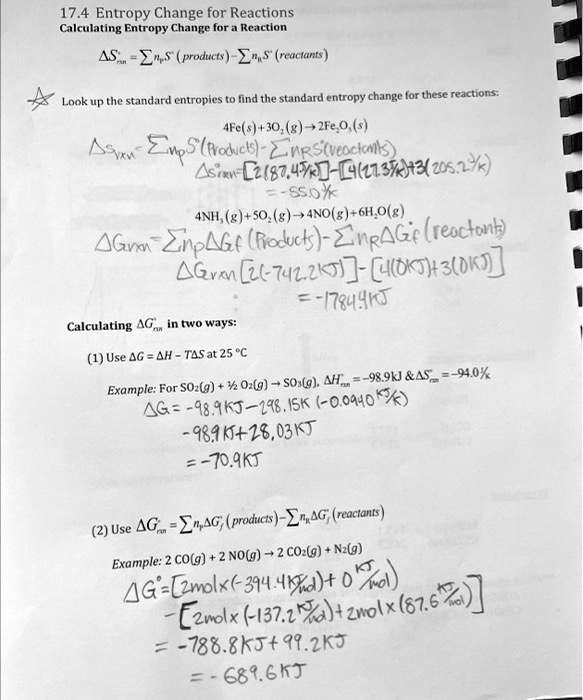 17.4 Entropy Change for Reactions
Calculating Entropy Change for a Reaction
ΔS°rxn = ∑npS°(products) – ∑nRS°(reactants)
Look up the standard entropies to find the standard entropy change for these reactions:
4Fe(s)+3O₂(g)→2Fe₂O₃(s)
ΔSrxn = ∑npS°(Products) - ∑nRS(reactants)
ΔS°rxn=[2(87.4 J/K)]-[4(27.3 J/K)+3(205.2 J/K)
= -550 J/K
4NH₃(g)+5O₂(g)→4NO(g)+6H₂O(g)
ΔGrxn = ∑npΔGf (Products) - ∑nRΔGf (reactants)
ΔGrxn [2(-742.2KJ)]-[4(0KJ)+3(0KJ)]
= -1784.4KJ
Calculating ΔG°rxn in two ways:
(1) Use ΔG = ΔH – TΔS at 25 °C
Example: For SO₂(g) + ½ O₂(g) → SO₃(g), ΔH°rxn = –98.9kJ & ΔS°rxn = –94.0 J/K
ΔG= -98.9KJ-298.15K (-0.0940 KJ/K)
-98.9KJ+28.03KJ
= -70.9KJ
(2) Use ΔG°rxn = ∑npΔG°f(products) – ∑nRΔG°f(reactants)
Example: 2 CO(g) + 2 NO(g) → 2 CO₂(g) + N₂(g)
ΔG°=[2molx(-394.4KJ/mol)+ 0 KJ/mol)
-[2molx(-137.2KJ/mol)+2molx(87.6 KJ/mol)]
= -788.8KJ+99.2KJ
= -689.6KJ